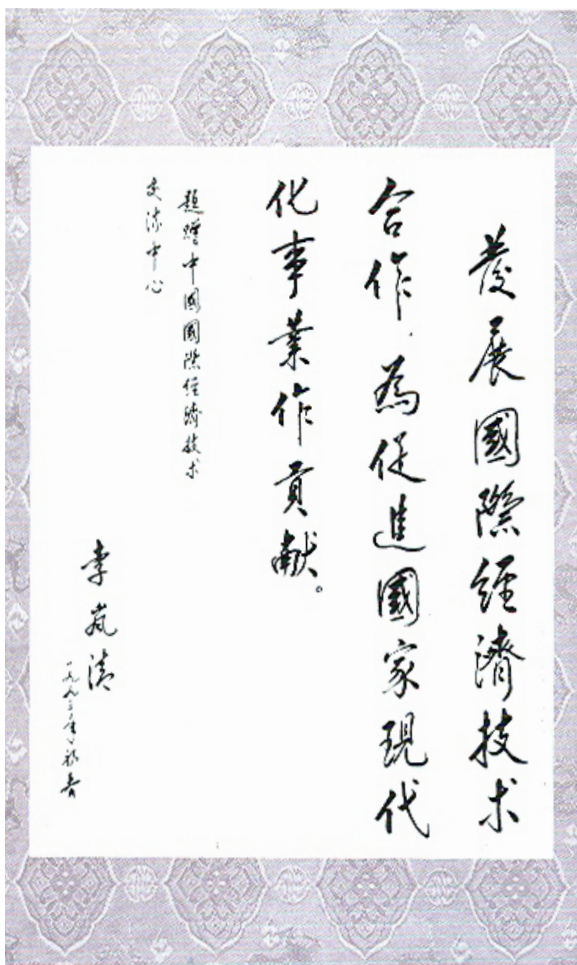 發展國際經濟技术
合作，為促進國家現代
化事業作貢献。
題贈中國國際經濟技术
交流中心
李岚清
一九九三年